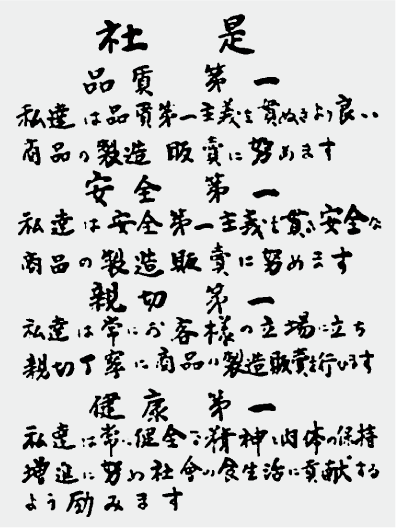 社是
品質第一
私達は品質第一主義を貫ぬきより良い
商品の製造販売に努めます
安全第一
私達は安全第一主義を貫き安全な
商品の製造販売に努めます
親切第一
私達は常にお客様の立場に立ち
親切丁寧に商品の製造販売を行います
健康第一
私達は常に健全な精神と肉体の保持
増進に努め社会の食生活に貢献する
よう励みます